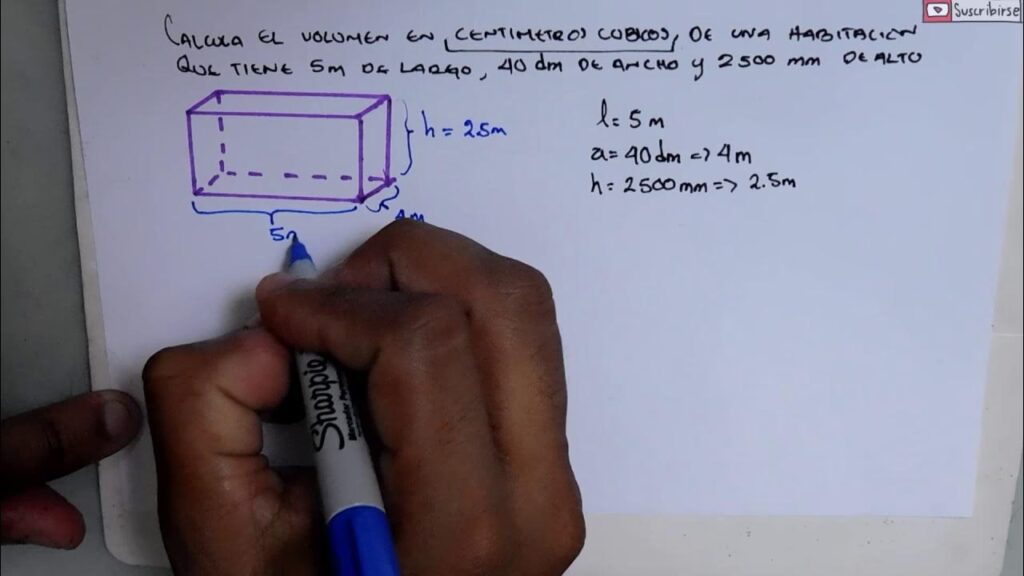 Suscribirse
CALCULA EL VOLUMEN EN CENTIMETROS CUBICOS, DE UNA HABITACION
QUE TIENE 5m DE LARGO, 40 dm DE ANCHO y 2500 mm DE ALTO
h = 2.5m
4m
5m
l = 5 m
a = 40 dm => 4 m
h = 2500 mm => 2.5 m
Sharpie